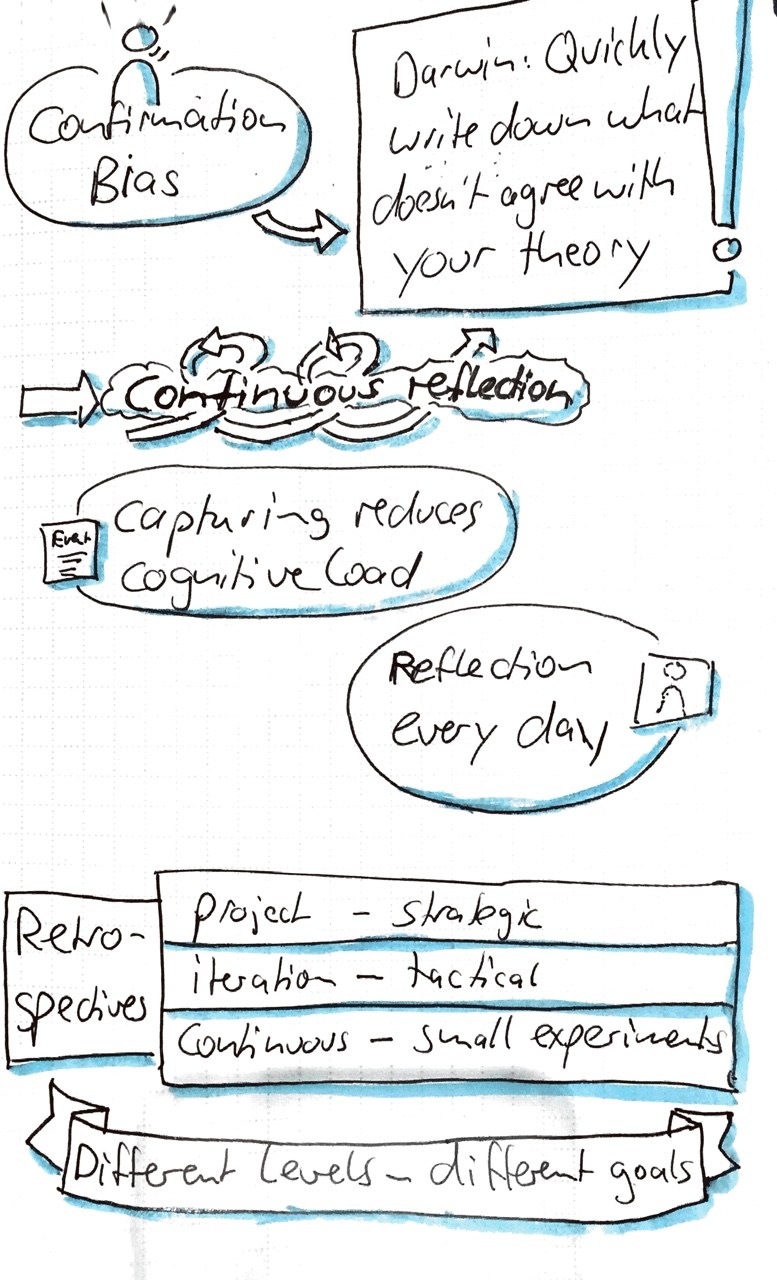 Confirmation
Bias
Darwin: Quickly
write down what
doesn't agree with
your theory
Continuous reflection
Event
Capturing reduces
cognitive load
Reflection
every day
Retro-
spectives
project - strategic
iteration - tactical
Continuous - small experiments
Different levels - different goals